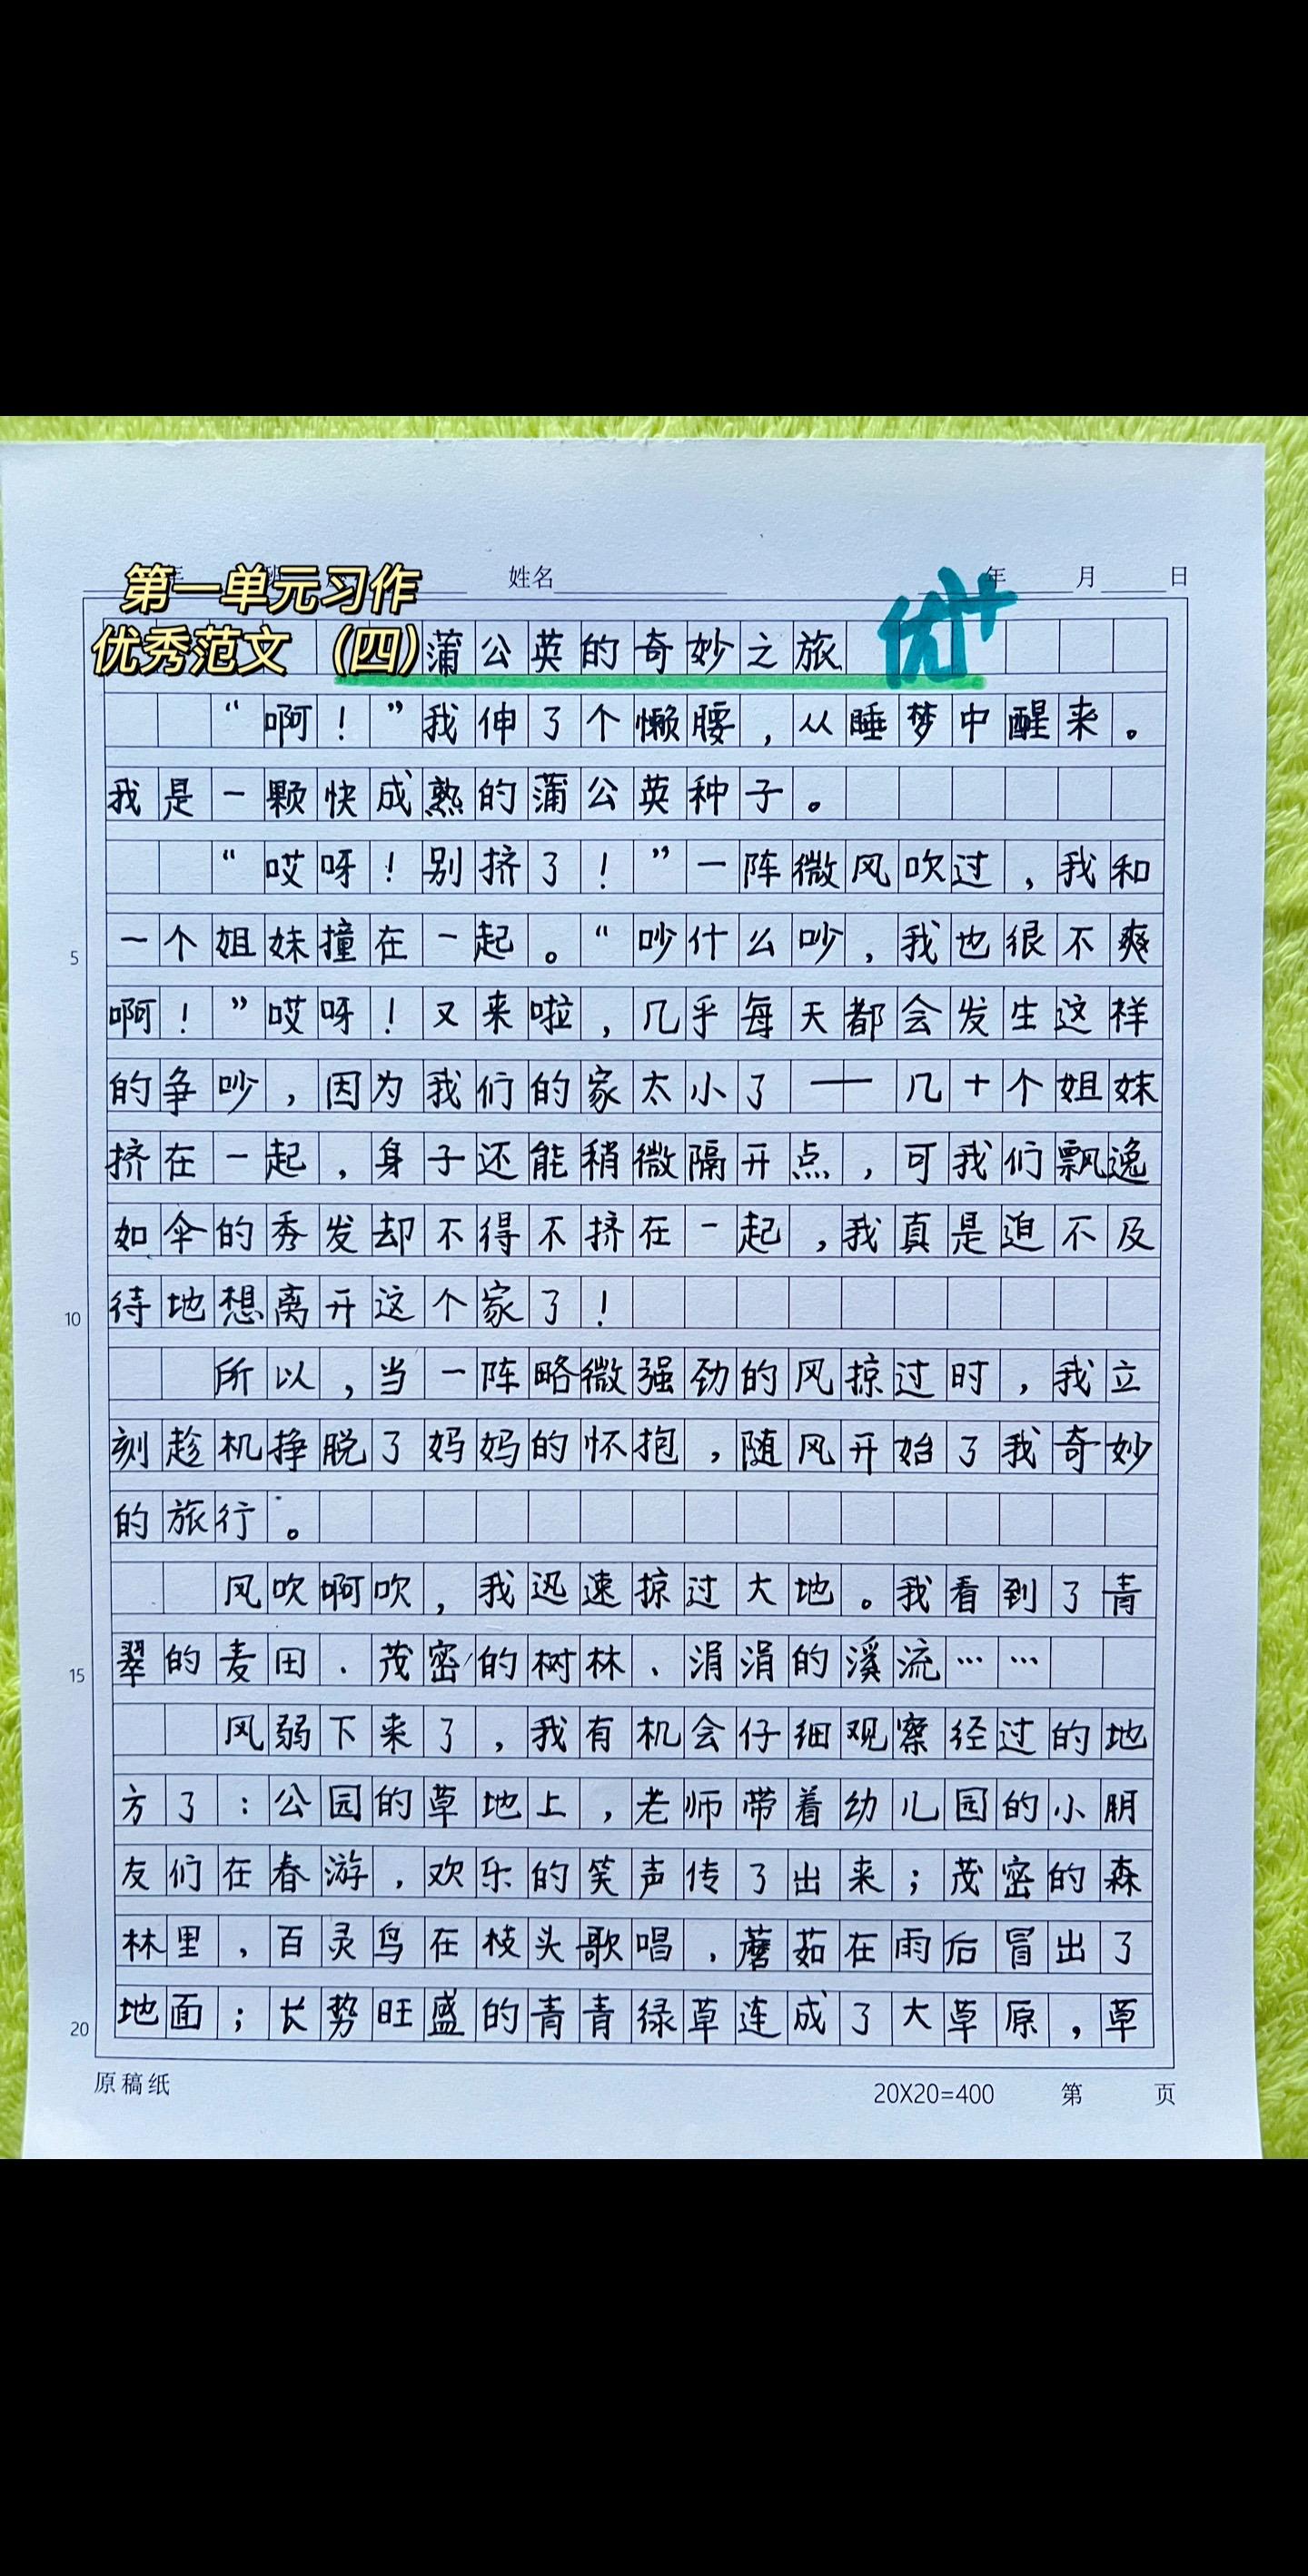 姓名 年 月 日
第一单元习作
优秀范文 （四）
蒲公英的奇妙之旅 优+
“啊！”我伸了个懒腰，从睡梦中醒来。
我是一颗快成熟的蒲公英种子。
“哎呀！别挤了！”一阵微风吹过，我和
5 一个姐妹撞在一起。“吵什么吵，我也很不爽
啊！”哎呀！又来啦，几乎每天都会发生这样
的争吵，因为我们的家太小了——几十个姐妹
挤在一起，身子还能稍微隔开点，可我们飘逸
如伞的秀发却不得不挤在一起，我真是迫不及
10 待地想离开这个家了！
所以，当一阵略微强劲的风掠过时，我立
刻趁机挣脱了妈妈的怀抱，随风开始了我奇妙
的旅行。
风吹啊吹，我迅速掠过大地。我看到了青
15 翠的麦田、茂密的树林、涓涓的溪流……
风弱下来了，我有机会仔细观察经过的地
方了：公园的草地上，老师带着幼儿园的小朋
友们在春游，欢乐的笑声传了出来；茂密的森
林里，百灵鸟在枝头歌唱，蘑茹在雨后冒出了
20 地面；长势旺盛的青青绿草连成了大草原，草
原稿纸 20X20=400 第 页